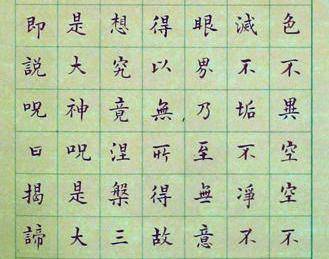 色不異空空不
滅不垢不淨不
眼界乃至無意
得以無所得故
想究竟涅槃三
是大神呪是大
即說呪曰揭諦